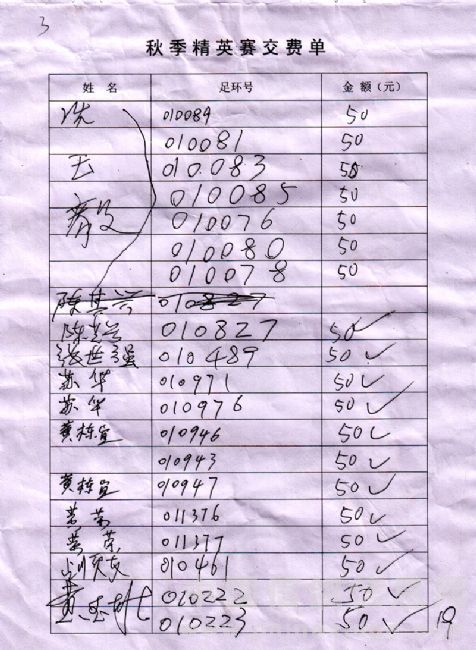 3
秋季精英赛交费单
姓 名 足环号 金 额（元）
洗 010089 50
010081 50
去 010083 50
010085 50
010076 50
010080 50
010078 50
010827
010827 50✓
010489 50✓
苏华 010971 50✓
苏华 010976 50✓
黄栋宜 010946 50✓
010943 50✓
黄栋宜 010947 50✓
011376 50✓
011377 50✓
010461 50✓
010222 50✓
010223 50✓ 19